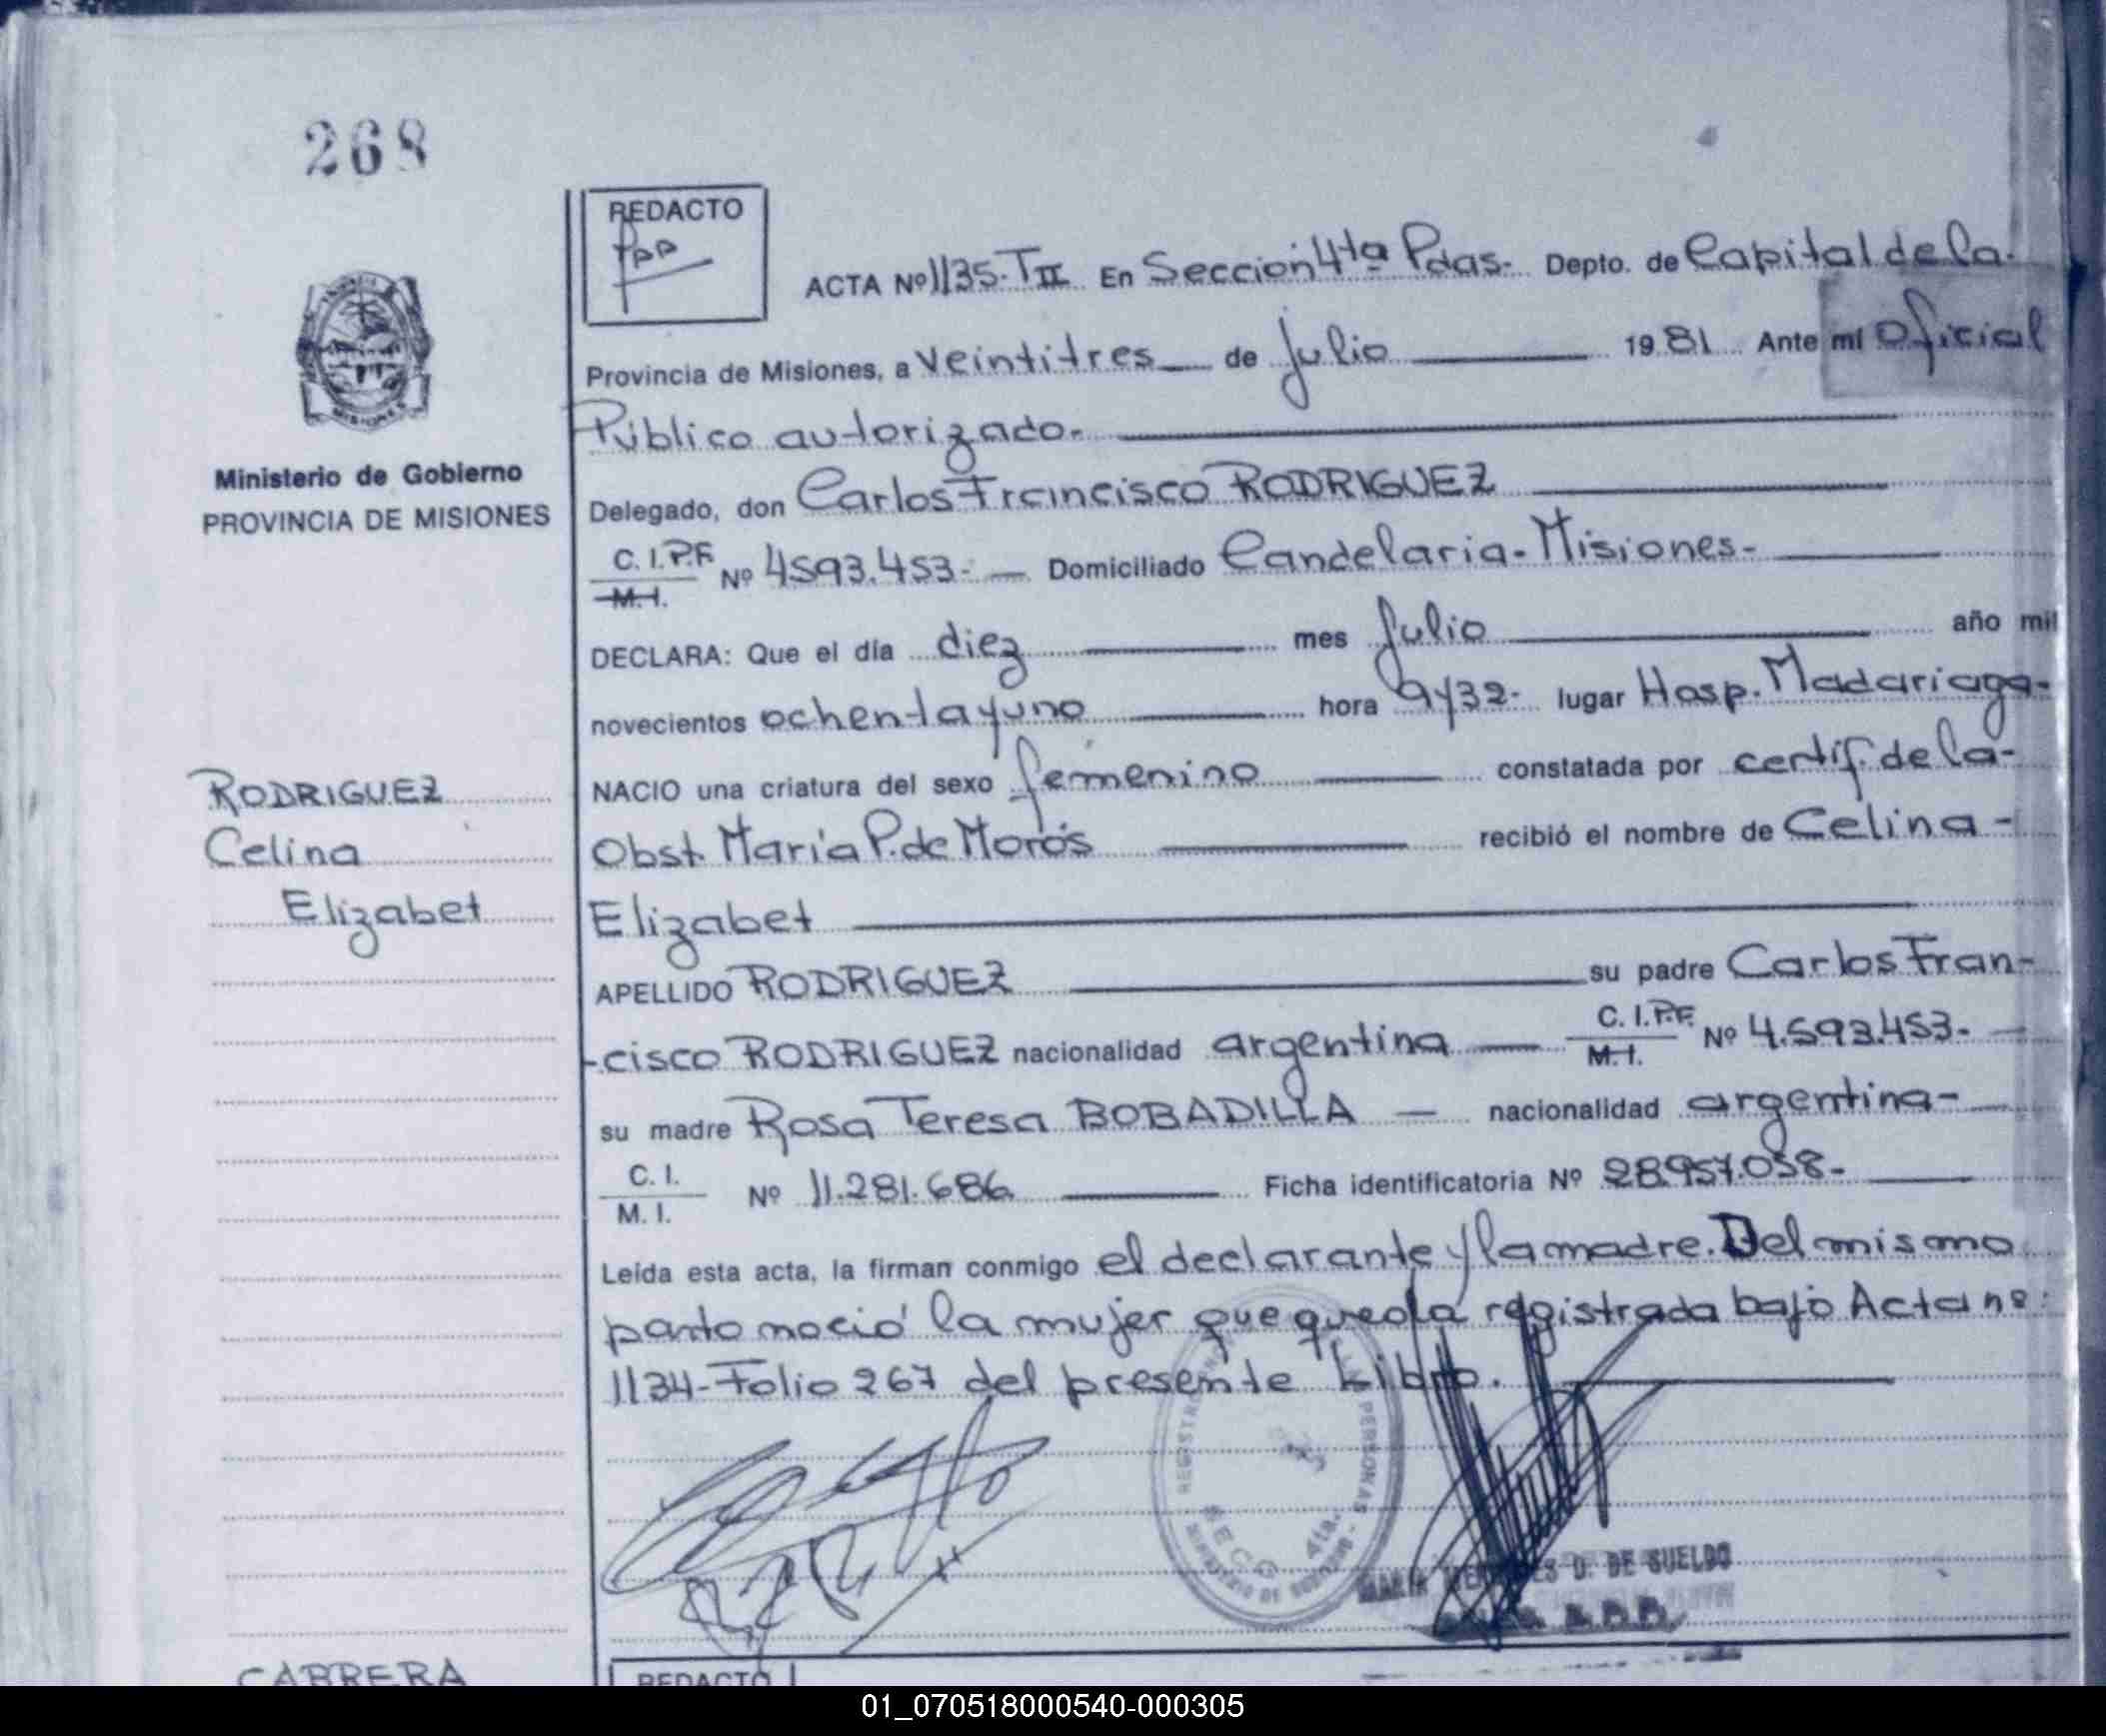 268
REDACTO
ACTA Nº 1135-TII En Sección 4ta Pdas.- Depto. de Capital de la.
Provincia de Misiones, a veintitres de julio 1981 Ante mí Oficial
Público autorizado.-
Ministerio de Gobierno
PROVINCIA DE MISIONES
Delegado, don Carlos Francisco RODRIGUEZ
C.I.P.F. Nº 4593.453.- Domiciliado Candelaria-Misiones-
M.I.
DECLARA: Que el día diez mes julio año mil
novecientos ochenta y uno hora 9 y 32- lugar Hosp. Madariaga-
RODRIGUEZ
Celina
Elizabet
NACIO una criatura del sexo femenino constatada por certif. de la-
Obst. María P. de Morós recibió el nombre de Celina-
Elizabet
APELLIDO RODRIGUEZ su padre Carlos Fran-
-cisco RODRIGUEZ nacionalidad argentina C.I.P.F. Nº 4.593.453.-
M.I.
su madre Rosa Teresa BOBADILLA — nacionalidad argentina-
C.I.
M.I. Nº 11.281.686 Ficha identificatoria Nº 28.957.058-
Leída esta acta, la firman conmigo el declarante y la madre. Del mismo
parto nació la mujer que queda registrada bajo Acta nº:
1134-Folio 267 del presente Libro.
PERSONAS
SECC 4ta.
DE SUELDO
CABRERA
REDACTO
01_070518000540-000305